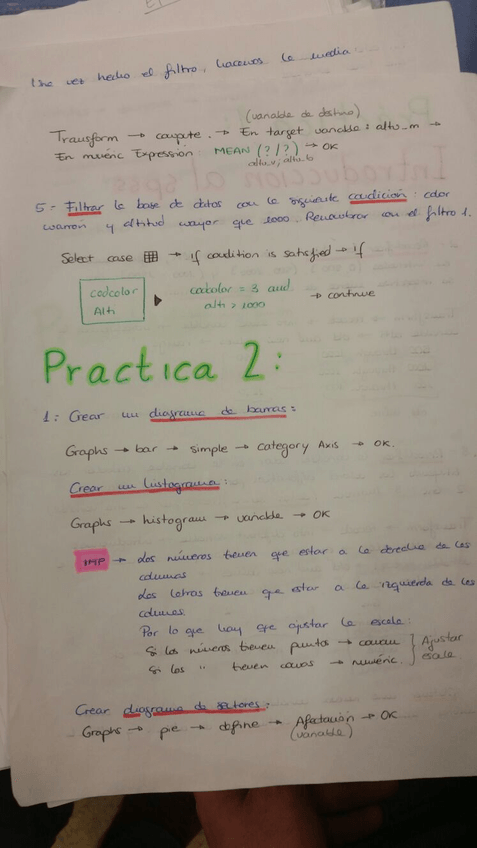 Una vez hecho el filtro, hacemos la media:
(variable de destino)
Transform → compute. → En target variable: altu_m →
En numéric Expression: MEAN (?/?) → OK
altu_v, altu_b
5.- Filtrar la base de datos con la siguiente condición: color
marrón y altitud mayor que 1000. Renombrar con el filtro 1.
Select case → if condition is satisfied → if
codcolor
Alti
codcolor = 3 and
alti > 1000
→ continue
Practica 2:
1: Crear un diagrama de barras:
Graphs → bar → simple → category Axis → OK.
Crear un histograma:
Graphs → histogram → variable → OK
IMP → Los números tienen que estar a la derecha de las
columnas
Las letras tienen que estar a la izquierda de las
columnas.
Por lo que hay que ajustar la escala:
Si los números tienen puntos → comau
Si los " tienen comas → numéric.
Ajustar
escala
Crear diagrama de sectores:
Graphs → pie → define → Afectación → OK
(variable)